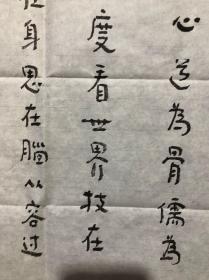 心道為骨儒為
度看世界技在
在身思在腦从容过